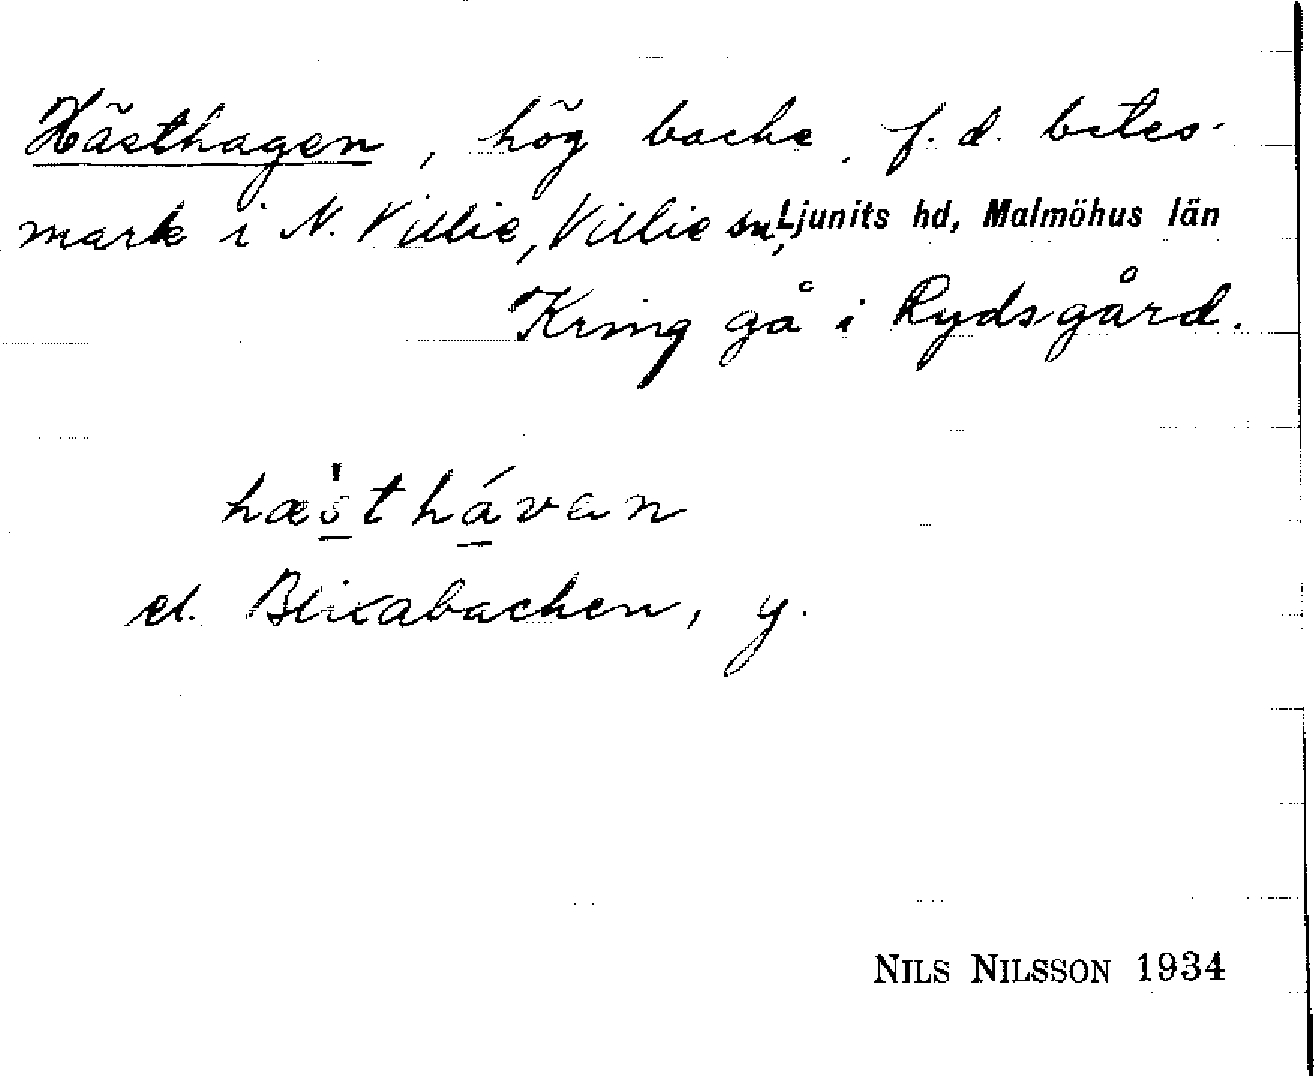 Hästhagen, hög backe, f. d. betes-
mark i N. Villie, Villie sn, Ljunits hd, Malmöhus län
Kring gå i Rydsgård.
hæ̍s̠thá̠van
el. Blixabacken, y.
NILS NILSSON 1934